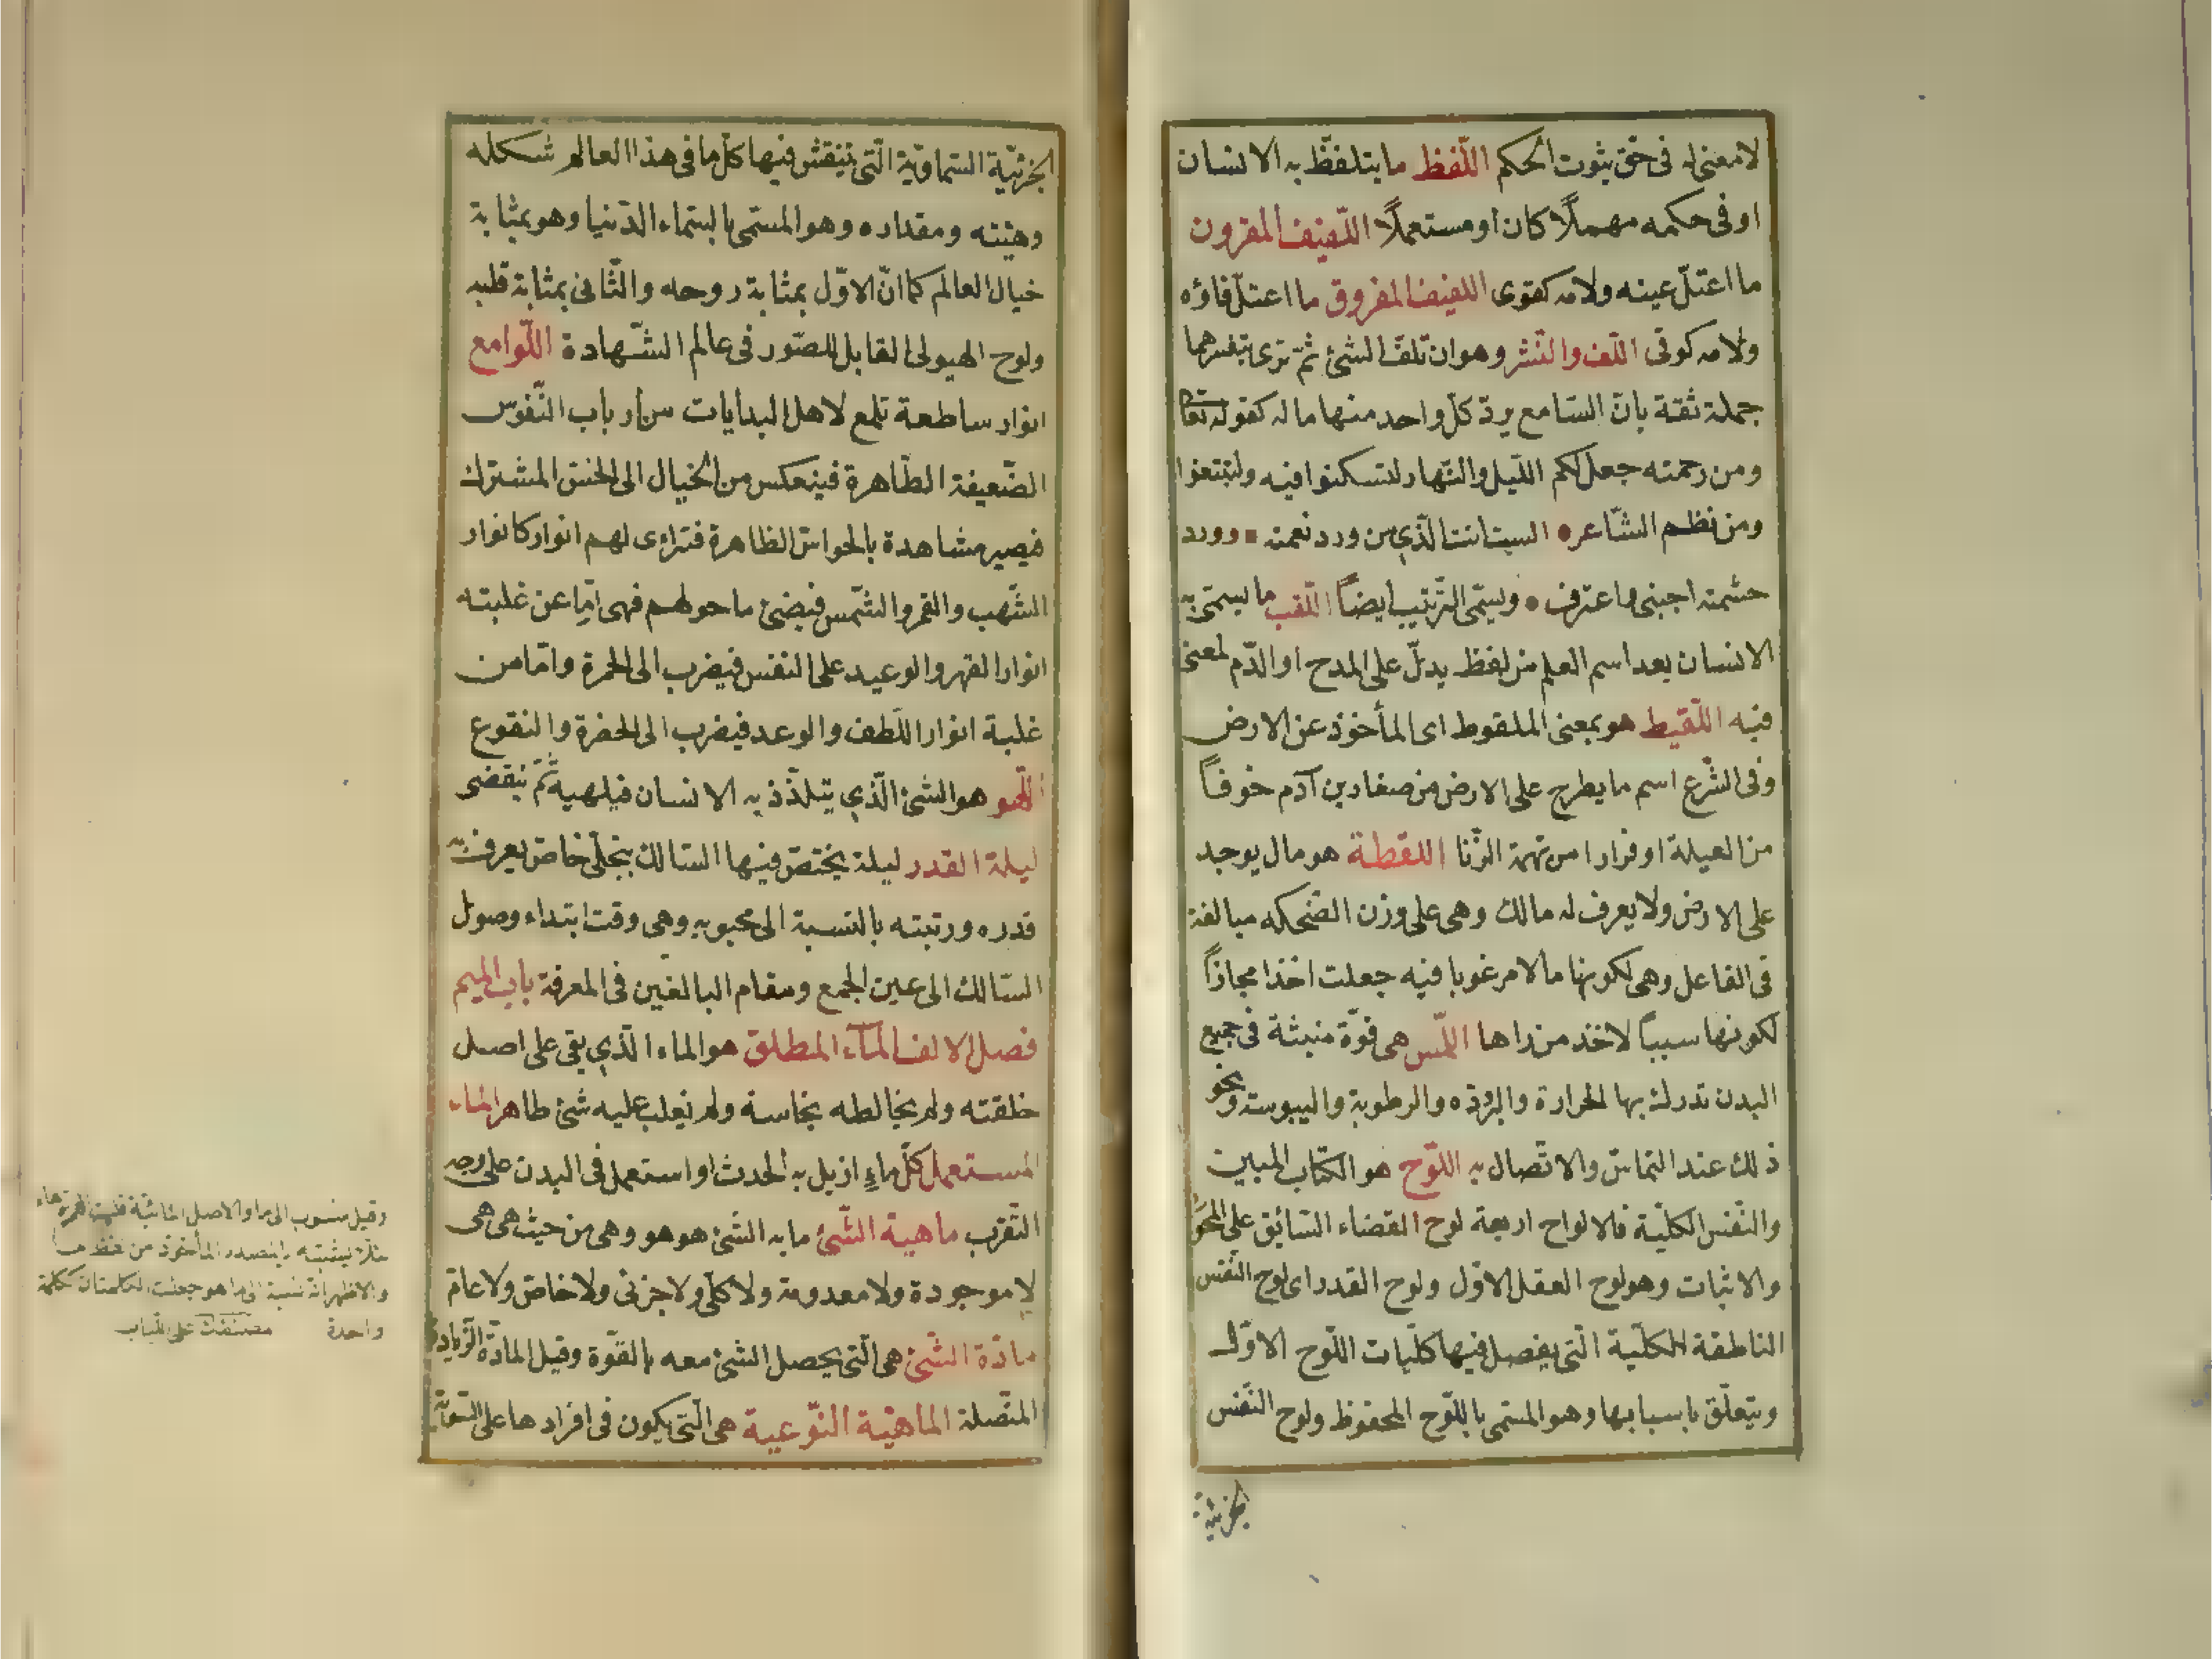 لا معنى له فى حق ثبوت الحكم اللّفظ ما يتلفّظ به الانسان
او فى حكمه مهملًا كان او مستعملًا اللّفيف المقرون
ما اعتلّ عينه ولامه كقوى اللفيف المفروق ما اعتلّ فاؤه
ولامه كوقى اللّف والنّشر وهو ان تلفّ الشئ ثمّ ترى بتفسيرهما
جملة ثقة بانّ السّامع يردّ كلّ واحد منها ما له كقوله تعا
ومن رحمته جعل لكم اللّيل والنّهار لتسكنوا فيه ولتبتغوا
ومن نظم الشّاعر الست انت الّذي من ورد نعمته وورد
حشمته اجنى واعترف ويسمّى الترتيب ايضاً اللّقب ما يسمّى به
الانسان بعد اسم العلم من لفظ يدلّ على المدح او الذّم لمعنى
فيه اللّقيط هو بمعنى الملقوط اى المأخوذ عن الارض
وفى الشّرع اسم ما يطرح على الارض من صغار بنى آدم خوفاً
من العيلة او فرارا من تهمة الزّنا اللقطة هو مال يوجد
على الارض ولا يعرف له مالك وهى على وزن الضّحكه مبالغة
فى الفاعل وهى لكونها مالا مرغوبا فيه جعلت اخذا مجازاً
لكونها سبباً لاخذ من راها اللّمس هى قوّة منبثة فى جميع
البدن تدرك بها الحرارة والبرودة والرطوبة واليبوسة ونحو
ذلك عند التماسّ والاتّصال به اللّوح هو الكتاب المبين
والنّفس الكليّة فالالواح اربعة لوح القضاء السّابق على المحو
والاثبات وهو لوح العقل الاوّل ولوح القدر اى لوح النّفس
الناطقة الكلّية الّتى يفصل فيها كلّيات اللّوح الاوّل
ويتعلّق باسبابها وهو المسمّى باللّوح المحفوظ ولوح النّفس
الجزئية
الجزئيّة السّماويّة الّتى ينتقش فيها كلّ ما فى هذا العالم شكله
وهيئته ومقداره وهو المسمّى بالسّماء الدّنيا وهو بمثابة
خيال العالم كما انّ الاوّل بمثابة روحه والثّانى بمثابة قلبه
ولوح الهيولى القابل للصّور فى عالم الشّهادة اللّوامع
انوار ساطعة تلمع لاهل البدايات من ارباب النّفوس
الضّعيفة الطّاهرة فينعكس من الخيال الى الحسّ المشترك
فيصير مشاهدة بالحواسّ الظاهرة فتراءى لهم انوار كانوار
الشّهب والقمر والشّمس فيضئ ما حولهم فهى امّا عن غلبته
انوار القهر والوعيد على النفس فيضرب الى الحمرة وامّا من
غلبة انوار اللّطف والوعد فيضرب الى الخضرة والنقوع
اللّهو هو الشئ الّذي يتلذّذ به الانسان فيلهيه ثمّ ينقضى
ليلة القدر ليلة يختصّ فيها السّالك بتجلّى خاصّ يعرف به
قدره ورتبته بالنّسبة الى محبوبه وهى وقت ابتداء وصول
السّالك الى عين الجمع ومقام البالغين فى المعرفة باب الميم
فصل الالف المآء المطلق هو الماء الّذي بقى على اصل
خلقته ولم يخالطه نجاسة ولم يغلب عليه شئ طاهر الماء
المستعمل كلّ ماءٍ ازيل به الحدث او استعمل فى البدن على وجه
التّقرب ماهية الشّئ ما به الشّئ هو هو وهى من حيث هى هى
لا موجودة ولا معدومة ولا كلّى ولا جزئى ولا خاصّ ولا عامّ
مادّة الشّئ هى الّتى يحصل الشّئ معه بالقوّة وقيل المادّة الزّيادة
المتّصلة الماهيّة النّوعية هى الّتى يكون فى افرادها على السّويّة
وقيل منسوب الى ما والاصل المائيّة قلبت الهمزة هاء
لئلّا يشتبه بالمصدر المأخوذ من لفظ ما
والاظهر انّه نسبة الى ما هو جعلت الكلمتان ككلمة
واحدة